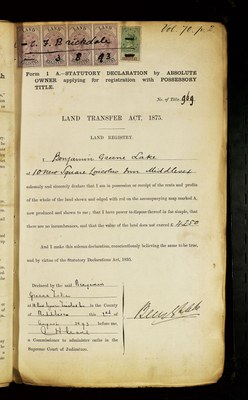 Vol. 70. p. 2
C. F. Brickdale
3 . 8 93
Form 1 A.—STATUTORY DECLARATION by ABSOLUTE
OWNER applying for registration with POSSESSORY
TITLE.
No. of Title, 969
LAND TRANSFER ACT, 1875.
LAND REGISTRY.
I, Benjamin Greene Lake
of 10 New Square Lincolns Inn Middlesex
solemnly and sincerely declare that I am in possession or receipt of the rents and profits
of the whole of the land shewn and edged with red on the accompanying map marked A,
now produced and shewn to me; that I have power to dispose thereof in fee simple, that
there are no incumbrances, and that the value of the land does not exceed £ 4250
And I make this solemn declaration, conscientiously believing the same to be true,
and by virtue of the Statutory Declarations Act, 1835.
Declared by the said Benjamin
Greene Lake
at New Square Lincolns Inn in the County
of Middlesex this 2nd of
August 1893 before me,
A Commissioner to administer oaths in the
Supreme Court of Judicature.
Benj G Lake